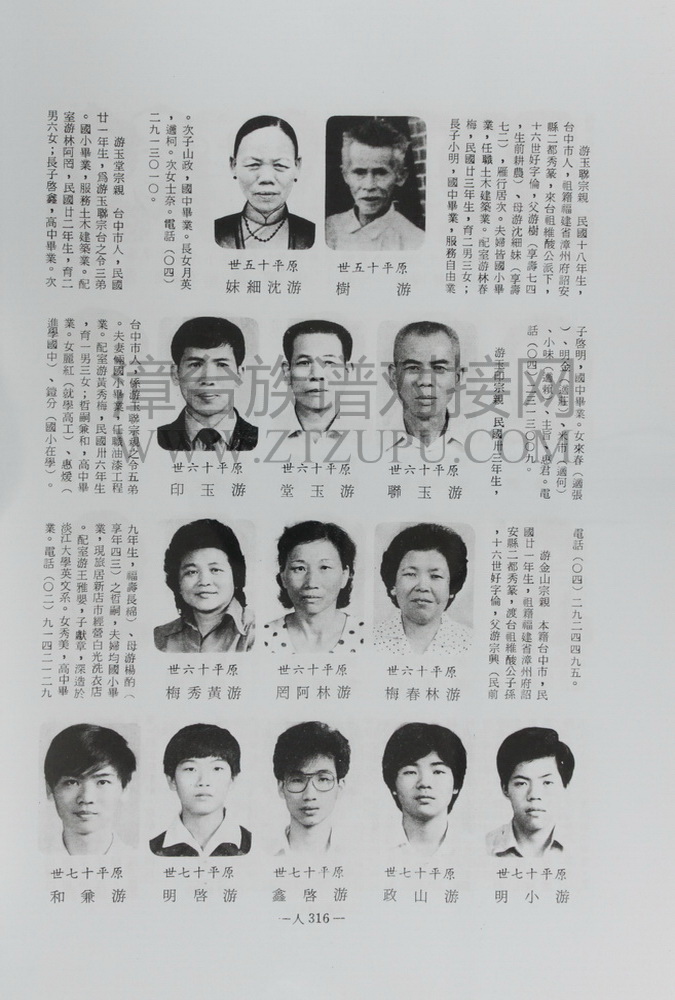 游玉聯宗親　民國十八年生，
台中市人，祖籍福建省漳州府詔安
縣二都秀篆，來台祖維酸公派下，
十六世好字倫，父游樹（享壽七四
，生前耕農）、母游沈細妹（享壽
七二），雁行居次。夫婦皆國小畢
業，任職土木建築業。配室游林春
梅，民國廿三年生，育二男三女；
長子小明，國中畢業，服務自由業
。次子山政，國中畢業。長女月英
，適柯。次女士奈。電話（〇四）
二九一三〇一〇。
游玉堂宗親　台中市人，民國
廿一年生，爲游玉聯宗台之令三弟
。國小畢業，服務土木建築業。配
室游林阿罔，民國廿二年生，育二
男六女；長子啓鑫，高中畢業。次
原平十五世
游樹
原平十五世
游沈細妹
子啓明，國中畢業。女來春（適張
）、明金（適莊）、米市（適何）
、小味（適賴）、主旨、惠君。電
話（〇四）二三一三〇〇九。
游玉印宗親　民國卅三年生，
台中市人，係游玉聯宗親之令五弟
。夫妻倆國小畢業，任職油漆工程
業。配室游黃秀梅，民國卅六年生
，育一男三女；哲嗣兼和，高中畢
業。女麗紅（就學高工）、惠煖（
進學國中）、鐙分（國小在學）。
原平十六世
游玉聯
原平十六世
游玉堂
原平十六世
游玉印
電話（〇四）二九二四四九五。
游金山宗親　本籍台中市，民
國廿一年生，祖籍福建省漳州府詔
安縣二都秀篆，渡台祖維酸公子孫
，十六世好字倫，父游宗興（民前
九年生，福壽長綿）、母游楊酌（
享年四三）之哲嗣，夫婦均國小畢
業，現旅居新店市經營白光洗衣店
。配室游王雅嬰，子獻章，深造於
淡江大學英文系。女秀美，高中畢
業。電話（〇二）九一四二一二九
原平十六世
游林春梅
原平十六世
游林阿罔
原平十六世
游黃秀梅
原平十七世
游小明
原平十七世
游山政
原平十七世
游啓鑫
原平十七世
游啓明
原平十七世
游兼和
—人 316—
章台族谱对接网
WWW.ZTZUPU.COM